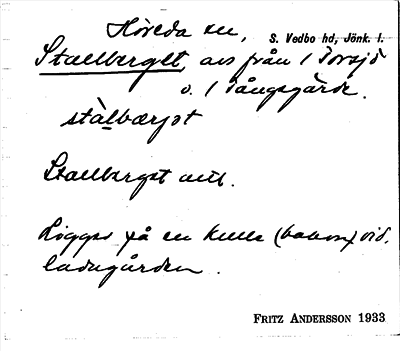 Höreda sn, S. Vedbo hd, Jönk. l.
Stallberget, avs från 1 Torsjö
o. 1 Tångsgärde.
stàlbærjət
Stallberget
Ligges på en kulle (backe) vid
ladugården.
FRITZ ANDERSSON 1933